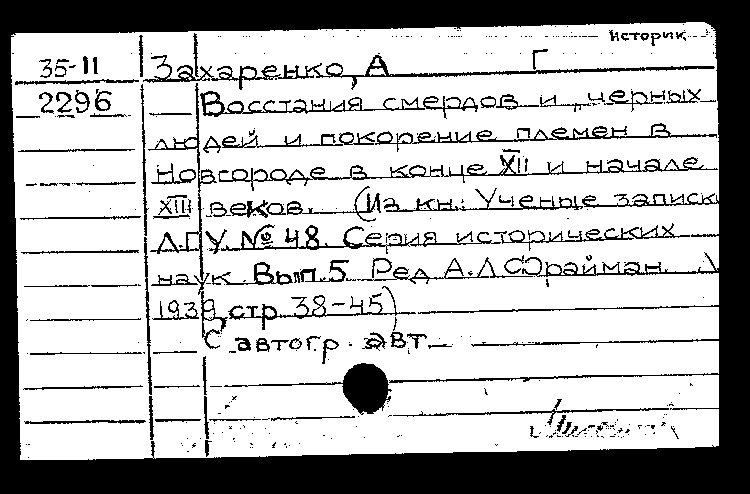 Историк
35-11 Захаренко, А Г
2296 Восстания смердов и „черных
людей и покорение племен в
Новгороде в конце XII и начале
XIII веков. (Из кн.: Ученые записк
Л.Г.У. № 48. Серия исторических
наук Вып. 5 Ред А.Л Фрайман. Л
1939, стр 38-45)
С автогр. авт